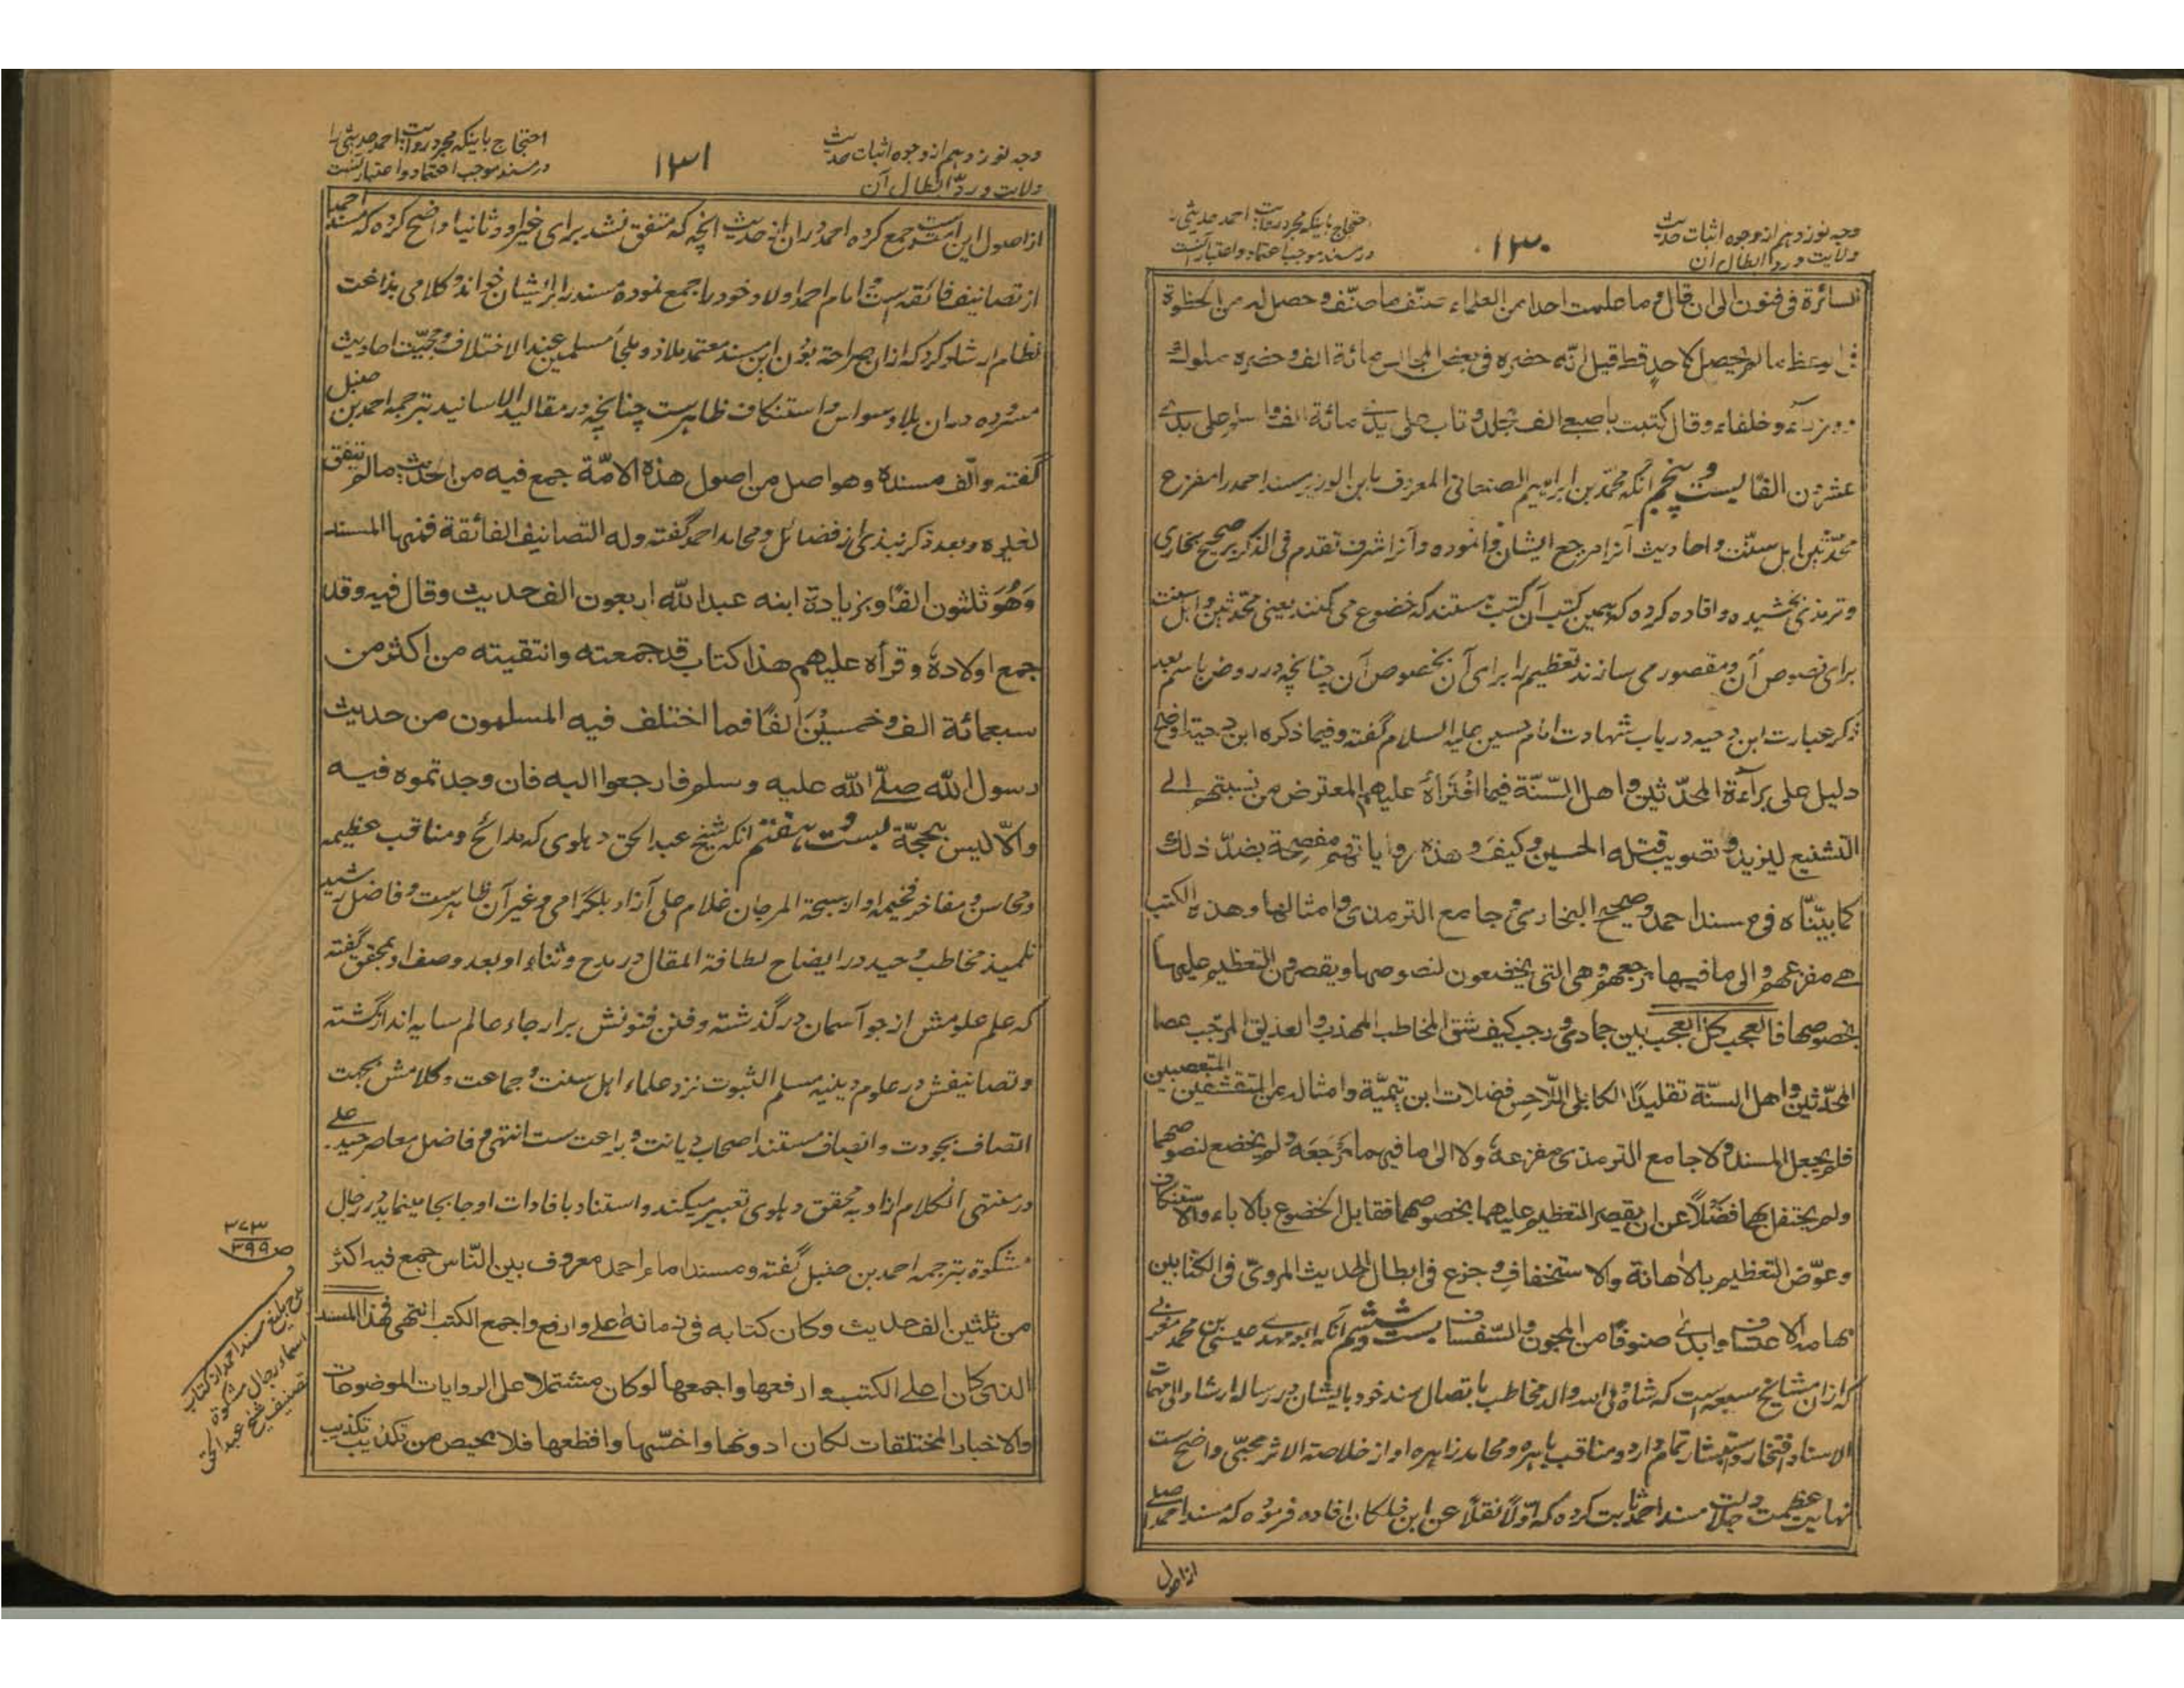 وجه نوزدهم از وجوه اثبات حدیث
ولایت و رد ابطال آن
۱۳۰
احتجاج باینکه مجرد روایت احمد حدیثی را
در مسند موجب اعتماد و اعتبار آنست
السائرة فی فنون الی ان قال و ما علمت احدا من العلماء صنّف ما صنّف و حصل له من الحظوة
فی الوعظ ما لم یحصل لاحدٍ قط قیل انّه حضره فی بعض المجالس مائة الف و حضره ملوك
و وزراء و خلفاء و قال کتبت باصبعی الف مجلد و تاب علی یدی مائة الف و اسلم علی یدی
عشرون الفًا بیست و پنجم آنکه محمّد بن ابراهیم الصنعانی المعروف بابن الوزیر مسند احمد را مفزع
محدّثین و اهل سنّت و احادیث آنرا مرجع ایشان وانموده و آنرا شرف تقدم فی الذکر بر صحیح بخاری
و ترمذی بخشیده و افاده کرده که همین کتب آن کتب هستند که خضوع می کنند یعنی محدّثین و اهل سنت
برای نصوص آن و مقصور می سازند تعظیم را برای آن بخصوص آن چنانچه در روض باسم بعد
ذکر عبارت ابن دحیه در باب شهادت امام حسین علیه السلام گفته و فیما ذکره ابن دحیة اوضح
دلیل علی برآءة المحدّثین و اهل السّنّة فیما افْتَرَاهُ علیهم المعترض من نسبتهم الی
التشنیع لیزید و تصویب قتله الحسین و کیف و هذه روایاتهم مفصحة بضدّ ذلك
کما بیّنّاه فی مسند احمد و صحیح البخاری و جامع الترمذی و امثالها و هذه الکتب
هی مفزعهم و الی ما فیها مرجعهم و هی التی یخضعون لنصوصها و یقصرون التعظیم علیها
بخصوصها فالعجب کل العجب بین جمادی و رجب کیف شق المخاطب المهذب و العذیق المرجّب عصا
المحدّثین و اهل السّنّة تقلیدًا للکابلی اللّاحس فضلات ابن تیمیّة و امثاله من المتقشفین المتعصبین
فلم یجعل المسند و لا جامع الترمذی مفزعه و لا الی ما فیهما مَرْجَعَه و لم یخضع لنصوصهما
و لم یحتفل بهما فضلًا عن ان یقصر التعظیم علیهما بخصوصهما فقابل الخضوع بالاباء و الاستنکاف
و عوّض التعظیم بالاهانة و الاستخفاف و جزع فی ابطال الحدیث المروی فی الکتابین
بهامه الاعتساف و ابدی صنوفًا من المجون و السّفساف بیست و ششم آنکه ابو مهدی عیسی بن محمد مغربی
که از ان مشایخ سبعه است که شاه ولی الله والد مخاطب باتصال سند خود بایشان در رساله ارشاد الی مهمات
الاسناد افتخار و استبشار تمام دارد و مناقب باهره و محامد زاهره او از خلاصة الاثر محبّی واضح است
نهایت عظمت و جلالت مسند احمد ثابت کرده که اوّلًا نقلًا عن ابن خلکان افاده فرموده که مسند احمد اصلی
از اصول
وجه نوزدهم از وجوه اثبات حدیث
ولایت و ردّ ابطال آن
۱۳۱
احتجاج باینکه مجرد روایت احمد حدیثی را
در مسند موجب اعتماد و اعتبار آنست
از اصول این امت است و جمع کرده احمد در ان از حدیث آنچه که متفق نشد برای غیر او و ثانیا واضح کرده که مسند احمد
از تصانیف فائقه است و امام احمد اولاد خود را جمع نموده مسند را بر ایشان خوانده و کلامی بلاغت
نظام ارشاد کرد که ازان صراحة بودن این مسند معتمد و ملاذ و ملجأ مسلمین عند الاختلاف و حجیّت احادیث
مسروده در ان بلا وسواس و استنکاف ظاهر ست چنانچه در مقالید الاسانید بترجمه احمد بن حنبل
گفته و الّف مسنده و هو اصل من اصول هذه الامّة جمع فیه من الحدیث ما لم یتفق
لغیره و بعد ذکر نبذی از فضائل و محامد احمد گفته و له التصانیف الفائقة فمنها المسند
وَهُوَ ثلثون الفًا و بزیادة ابنه عبد الله اربعون الف حدیث و قال فیه و قد
جمع اولاده و قرأه علیهم هذا کتاب قد جمعته و انتقیته من اکثر من
سبعمائة الف و خمسین الفًا فما اختلف فیه المسلمون من حدیث
رسول الله صلّی الله علیه و سلم فارجعوا الیه فان وجدتموه فیه
و الّا لیس بحجّة بیست و هفتم آنکه شیخ عبد الحق دهلوی که مدائح و مناقب عظیمه
و محاسن و مفاخر فخیمه او از سبحة المرجان غلام علی آزاد بلگرامی و غیر آن ظاهر ست و فاضل رشید
تلمیذ مخاطب وحید در ایضاح لطافة المقال در مدح و ثناء او بعد وصف او بمحقق گفته
که علم علومش از جو آسمان در گذشته و فنن فنونش بر ارجاء عالم سایه انداز گشته
و تصانیفش در علوم دینیه مسلم الثبوت نزد علماء اهل سنت و جماعت و کلامش بجهت
اتصاف بجودت و انصاف مستند اصحاب دیانت و براعت ست انتهی و فاضل معاصر حیدر علی
در منتهی الکلام ازو به محقق دهلوی تعبیر میکند و استناد بافادات او جابجا مینماید در رجال
مشکوة بترجمه احمد بن حنبل گفته و مسند امام احمد معروف بین النّاس جمع فیه اکثر
من ثلثین الف حدیث و کان کتابه فی زمانه اعلی و ارفع و اجمع الکتب انتهی فهذا المسند
الذی کان اعلی الکتب و ارفعها و اجمعها لو کان مشتملا علی الروایات الموضوعات
و الاخبار المختلقات لکان ادونها و اخسّها و افظعها فلا محیص من تکذیب تکذیب
۳۷۳
ص ۳۹۹
مدح بلیغ مسند احمد از کتاب
اسماء رجال مشکوة
تصنیف شیخ عبد الحق